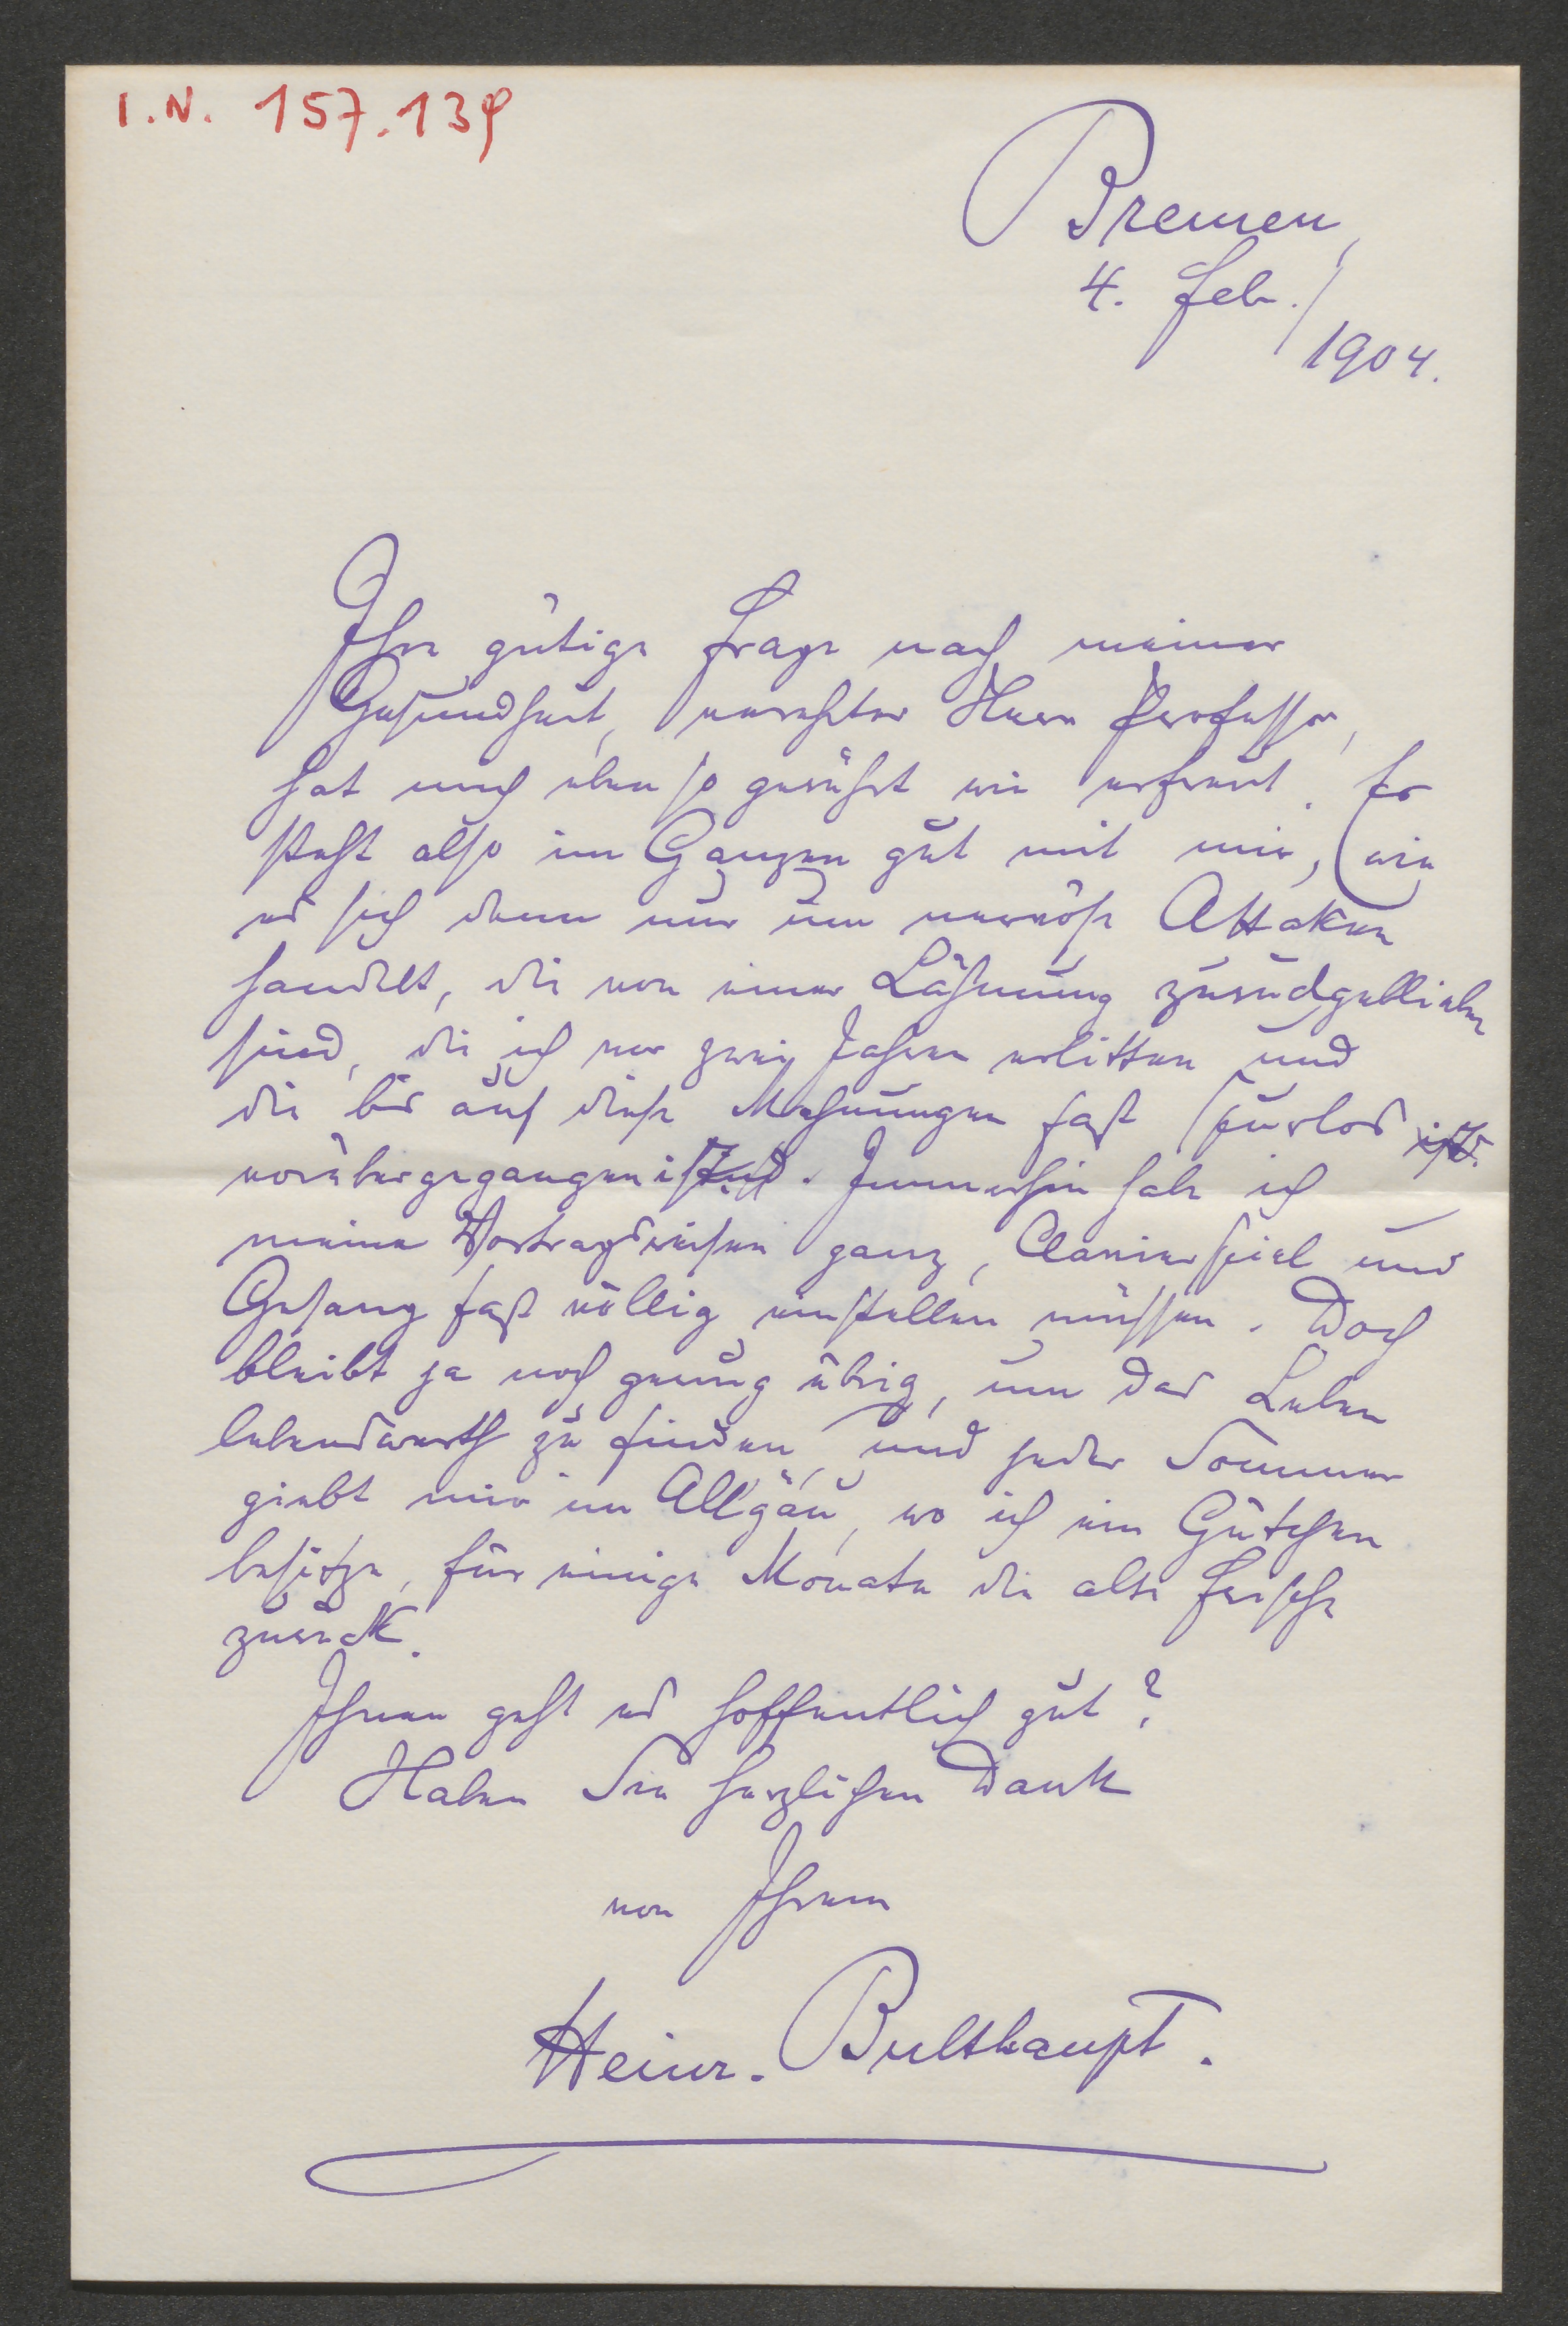 I.N. 157.139
Bremen,
4. Feb./
1904.
Ihre gütige Frage nach meiner
Gesundheit, verehrter Herr Professor,
hat mich eben so gerührt wie erfreut. Es
steht also im Ganzen gut mit mir, wie
es sich denn nur um nervöse Attaken
handelt, die von einer Lähmung zurückgeblieben
sind, die ich vor zwei Jahren erlitten und
die bis auf diese Mahnungen fast spurlos
vorübergegangen ist. Immerhin habe ich
meine Vortragsreisen ganz, Clavierspiel und
Gesang fast völlig einstellen müssen. Doch
bleibt ja noch genug übrig, um das Leben
lebenswerth zu finden, und jeder Sommer
giebt mir im Allgäu, wo ich ein Gütchen
besitze, für einige Monate die alte Frische
zurück.
Ihnen geht es hoffentlich gut?
Haben Sie herzlichen Dank
von Ihrem
Heinr. Bulthaupt.